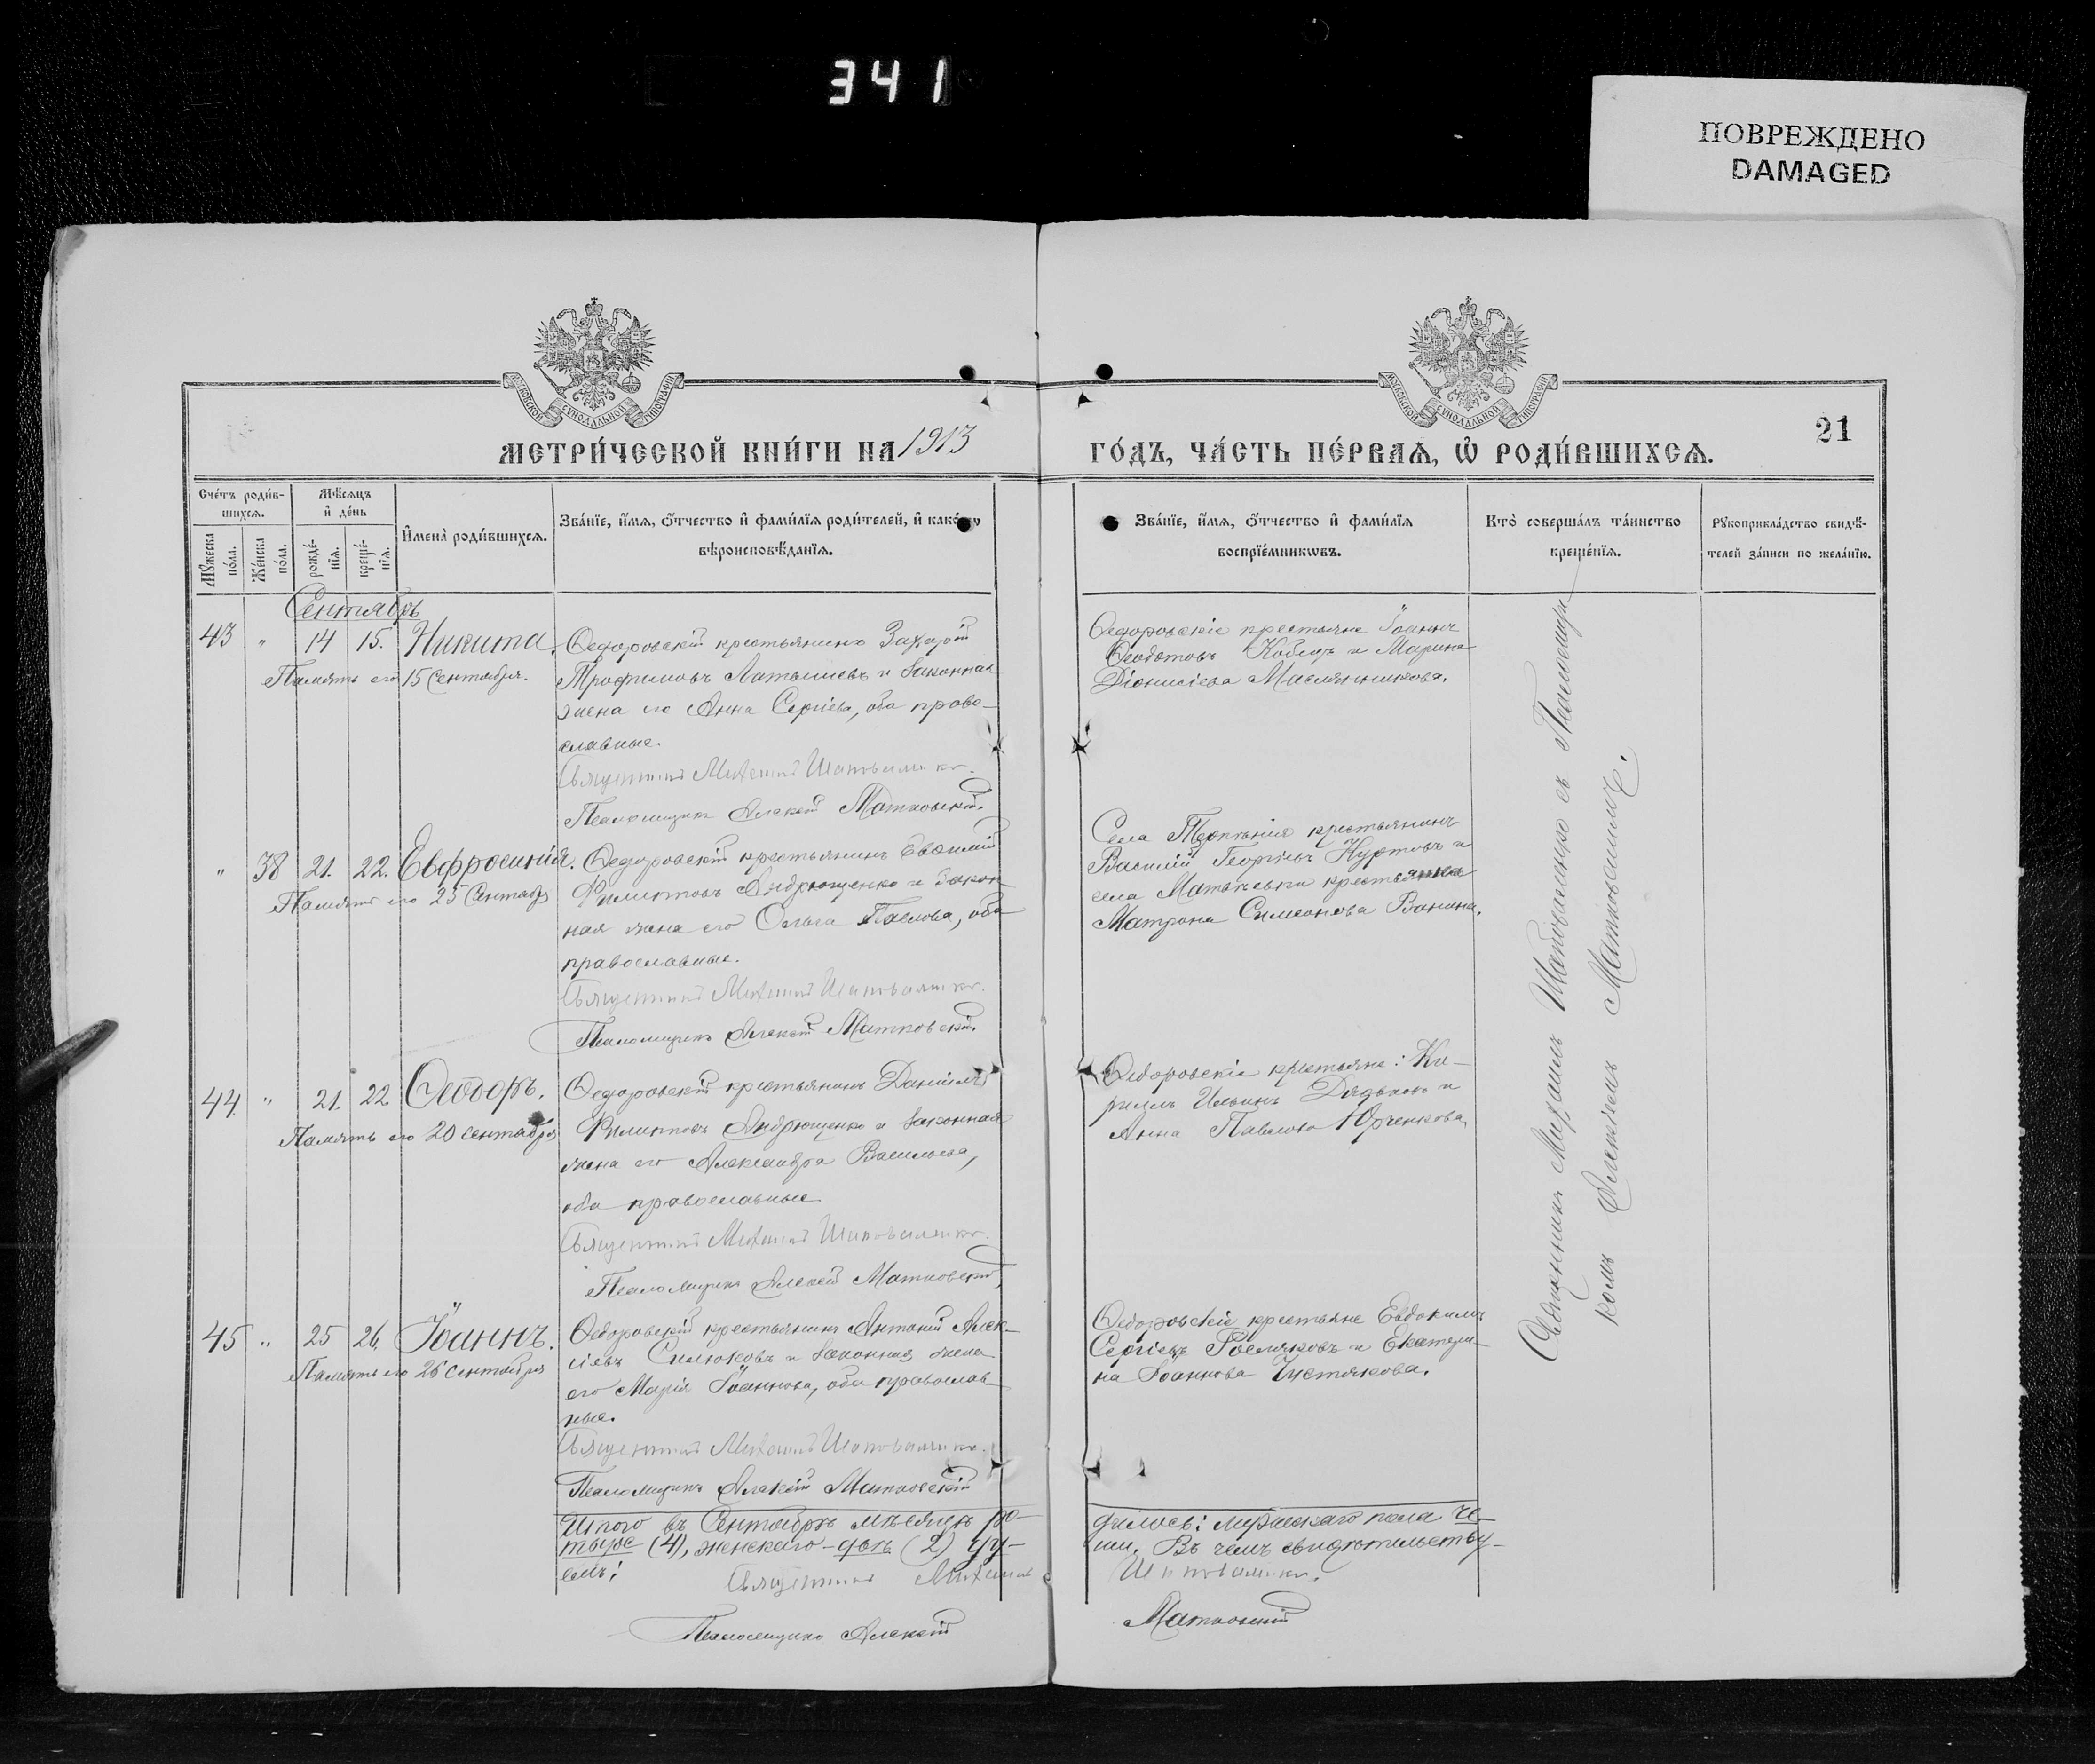 341
ПОВРЕЖДЕНО
DAMAGED
МОСКОВСКОЙ СѴНОДАЛЬНОЙ ТИПОГРАФІИ
МОСКОВСКОЙ СѴНОДАЛЬНОЙ ТИПОГРАФІИ
МЕТРИ́ЧЕСКОЙ КНИ́ГИ НА 1913
ГО́ДЪ, ЧА́СТЬ ПЕ́РВАѦ, Ѡ҆ РОДИ́ВШИХСѦ.
21
Сче́тъ роди́в-
шихсѧ.
Мꙋ́жеска по́ла.
Же́нска по́ла.
Мѣ́сѧцъ
и҆ де́нь
рожде́-
нїѧ.
креще́-
нїѧ.
И҆мена̀ роди́вшихсѧ.
Зва́нїе, и҆́мѧ, ѻ҆́тчество и҆ фами́лїѧ роди́телей, и҆ како́гѡ
вѣроисповѣ́данїѧ.
Зва́нїе, и҆́мѧ, ѻ҆́тчество и҆ фами́лїѧ
воспрїе́мникѡвъ.
Кто̀ соверша́лъ та́инство
креще́нїѧ.
Рꙋкоприкла́дство свидѣ́-
телей за́писи по жела́нїю.
Сентябрь
43 " 14 15. Никита.
Память его 15 Сентября.
Ѳедоровскій крестьянинъ Захарій
Трофимовъ Латышевъ и законная
жена его Анна Сергіева, оба право-
славные.
Священникъ Михаилъ Шаповаленко.
Псаломщикъ Алексій Матковскій.
Ѳедоровскіе крестьяне Іоаннъ
Ѳеодотовъ Кобецъ и Марина
Діонисіева Маслянникова.
" 38 21. 22. Евфросинія.
Память его 25 Сентябр
Ѳедоровскій крестьянинъ Евѳимій
Филиповъ Андрющенко и закон-
ная жена его Ольга Павлова, оба
православные.
Священникъ Михаилъ Шаповаленко.
Псаломщикъ Алексій Матковскій.
Села Терпѣнія крестьянинъ
Василій Георгіевъ Нуртовъ и
села Матвѣевки крестьянка
Матрона Симеонова Ванина.
44 " 21. 22. Ѳеодоръ.
Память его 20 сентября
Ѳедоровскій крестьянинъ Даніилъ
Филиповъ Андрющенко и законная
жена его Александра Васильева,
оба православные
Священникъ Михаилъ Шаповаленко.
Псаломщикъ Алексій Матковскій
Ѳедоровскіе крестьяне: Ки-
риллъ Ильинъ Дядьковъ и
Анна Павлова Юрченкова.
45 " 25 26. Іоаннъ.
Память его 26 Сентября
Ѳедоровскій крестьянинъ Антоній Алек-
сіевъ Силюковъ и законная жена
его Марія Іоаннова, оба православ-
ные.
Священникъ Михаилъ Шаповаленко.
Псаломщикъ Алексій Матковскій
Ѳедоровскіе крестьяне Евдокимъ
Сергіевъ Росляковъ и Екатери-
на Іоаннова Чистякова.
Священникъ Михаилъ Шаповаленко съ Псаломщи-
комъ Алексіемъ Матковскимъ.
Итого въ Сентябрѣ мѣсяцѣ ро-
дилось: мужескаго пола че-
тыре (4), женскаго - двѣ (2) ду-
ши. Въ чемъ свидѣтельству-
емъ:
Священникъ Михаилъ Шаповаленко.
Псаломщикъ Алексій Матковскій